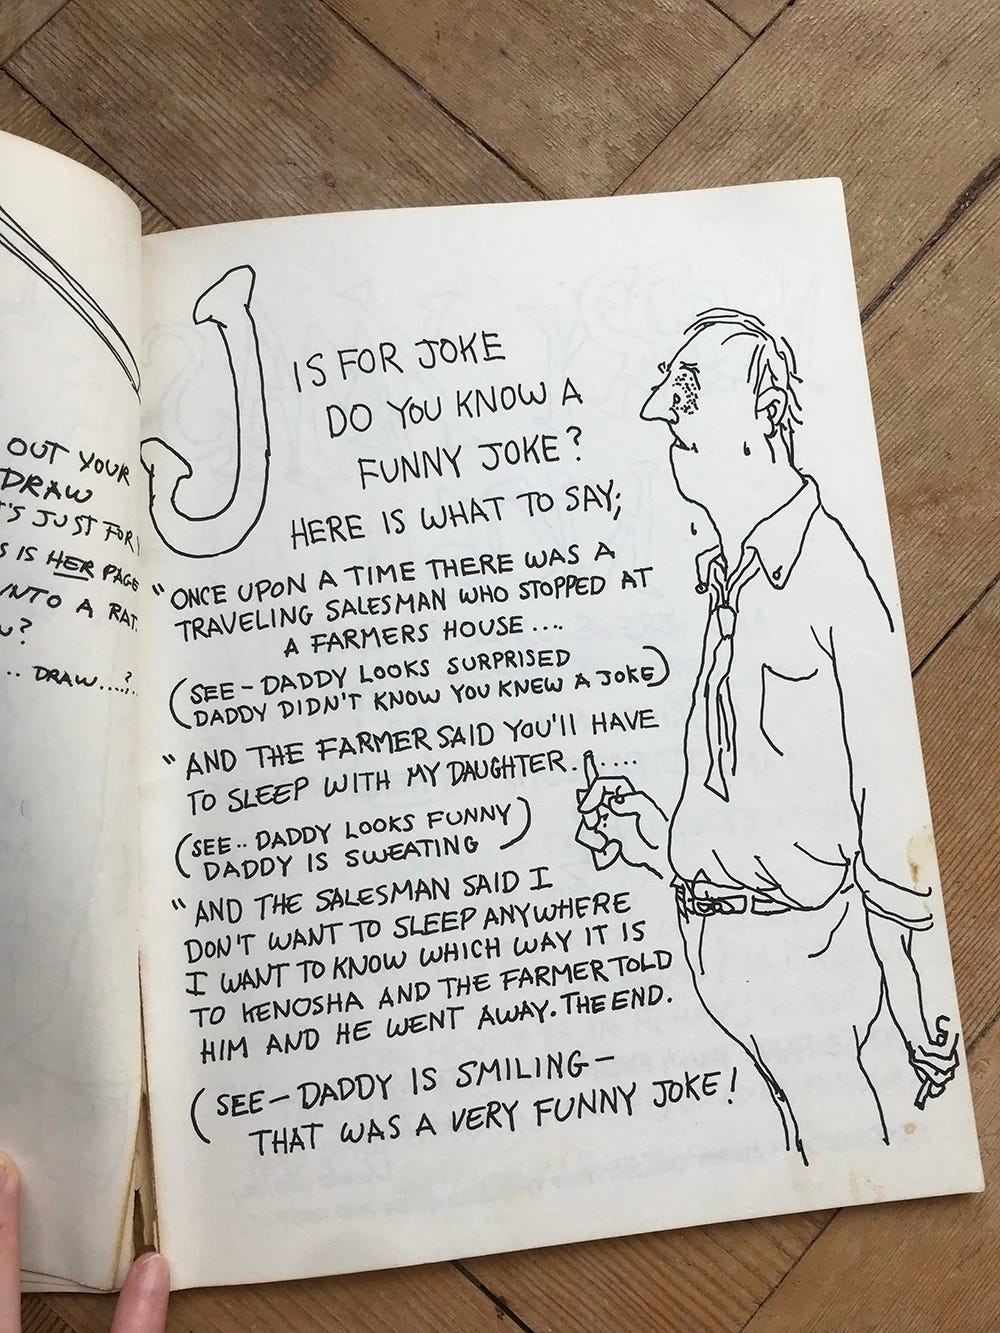 OUT YOUR
DRAW
'S JUST FOR
S IS HER PAGE
INTO A RAT.
?
.. DRAW....?..
J
IS FOR JOKE
DO YOU KNOW A
FUNNY JOKE?
HERE IS WHAT TO SAY;
"ONCE UPON A TIME THERE WAS A
TRAVELING SALESMAN WHO STOPPED AT
A FARMERS HOUSE....
(SEE-DADDY LOOKS SURPRISED
DADDY DIDN'T KNOW YOU KNEW A JOKE)
"AND THE FARMER SAID YOU'LL HAVE
TO SLEEP WITH MY DAUGHTER......
(SEE.. DADDY LOOKS FUNNY)
DADDY IS SWEATING
"AND THE SALESMAN SAID I
DON'T WANT TO SLEEP ANYWHERE
I WANT TO KNOW WHICH WAY IT IS
TO KENOSHA AND THE FARMER TOLD
HIM AND HE WENT AWAY. THE END.
(SEE-DADDY IS SMILING-
THAT WAS A VERY FUNNY JOKE!